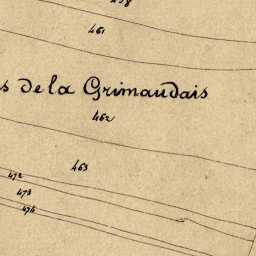 461
s de la Grimaudais
462
463
472
473
474